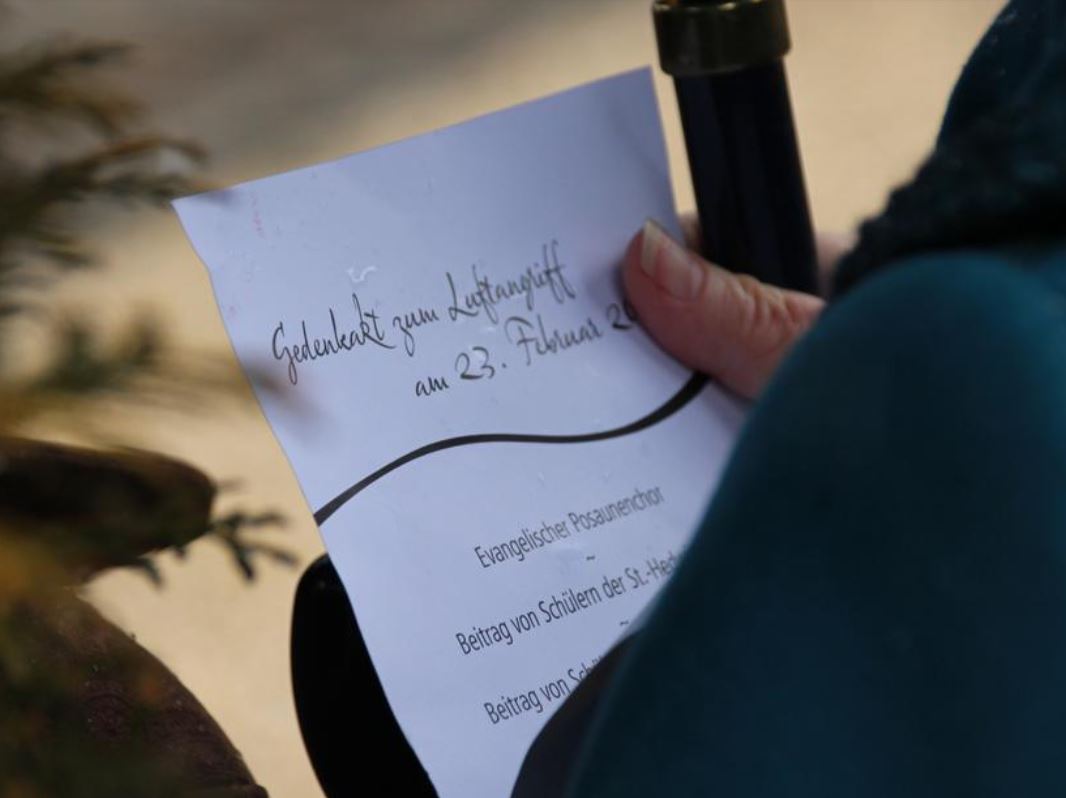 Gedenkakt zum Luftangriff
am 23. Februar 20
Evangelischer Posaunenchor
~
Beitrag von Schülern der St.-Hed
~
Beitrag von Schü